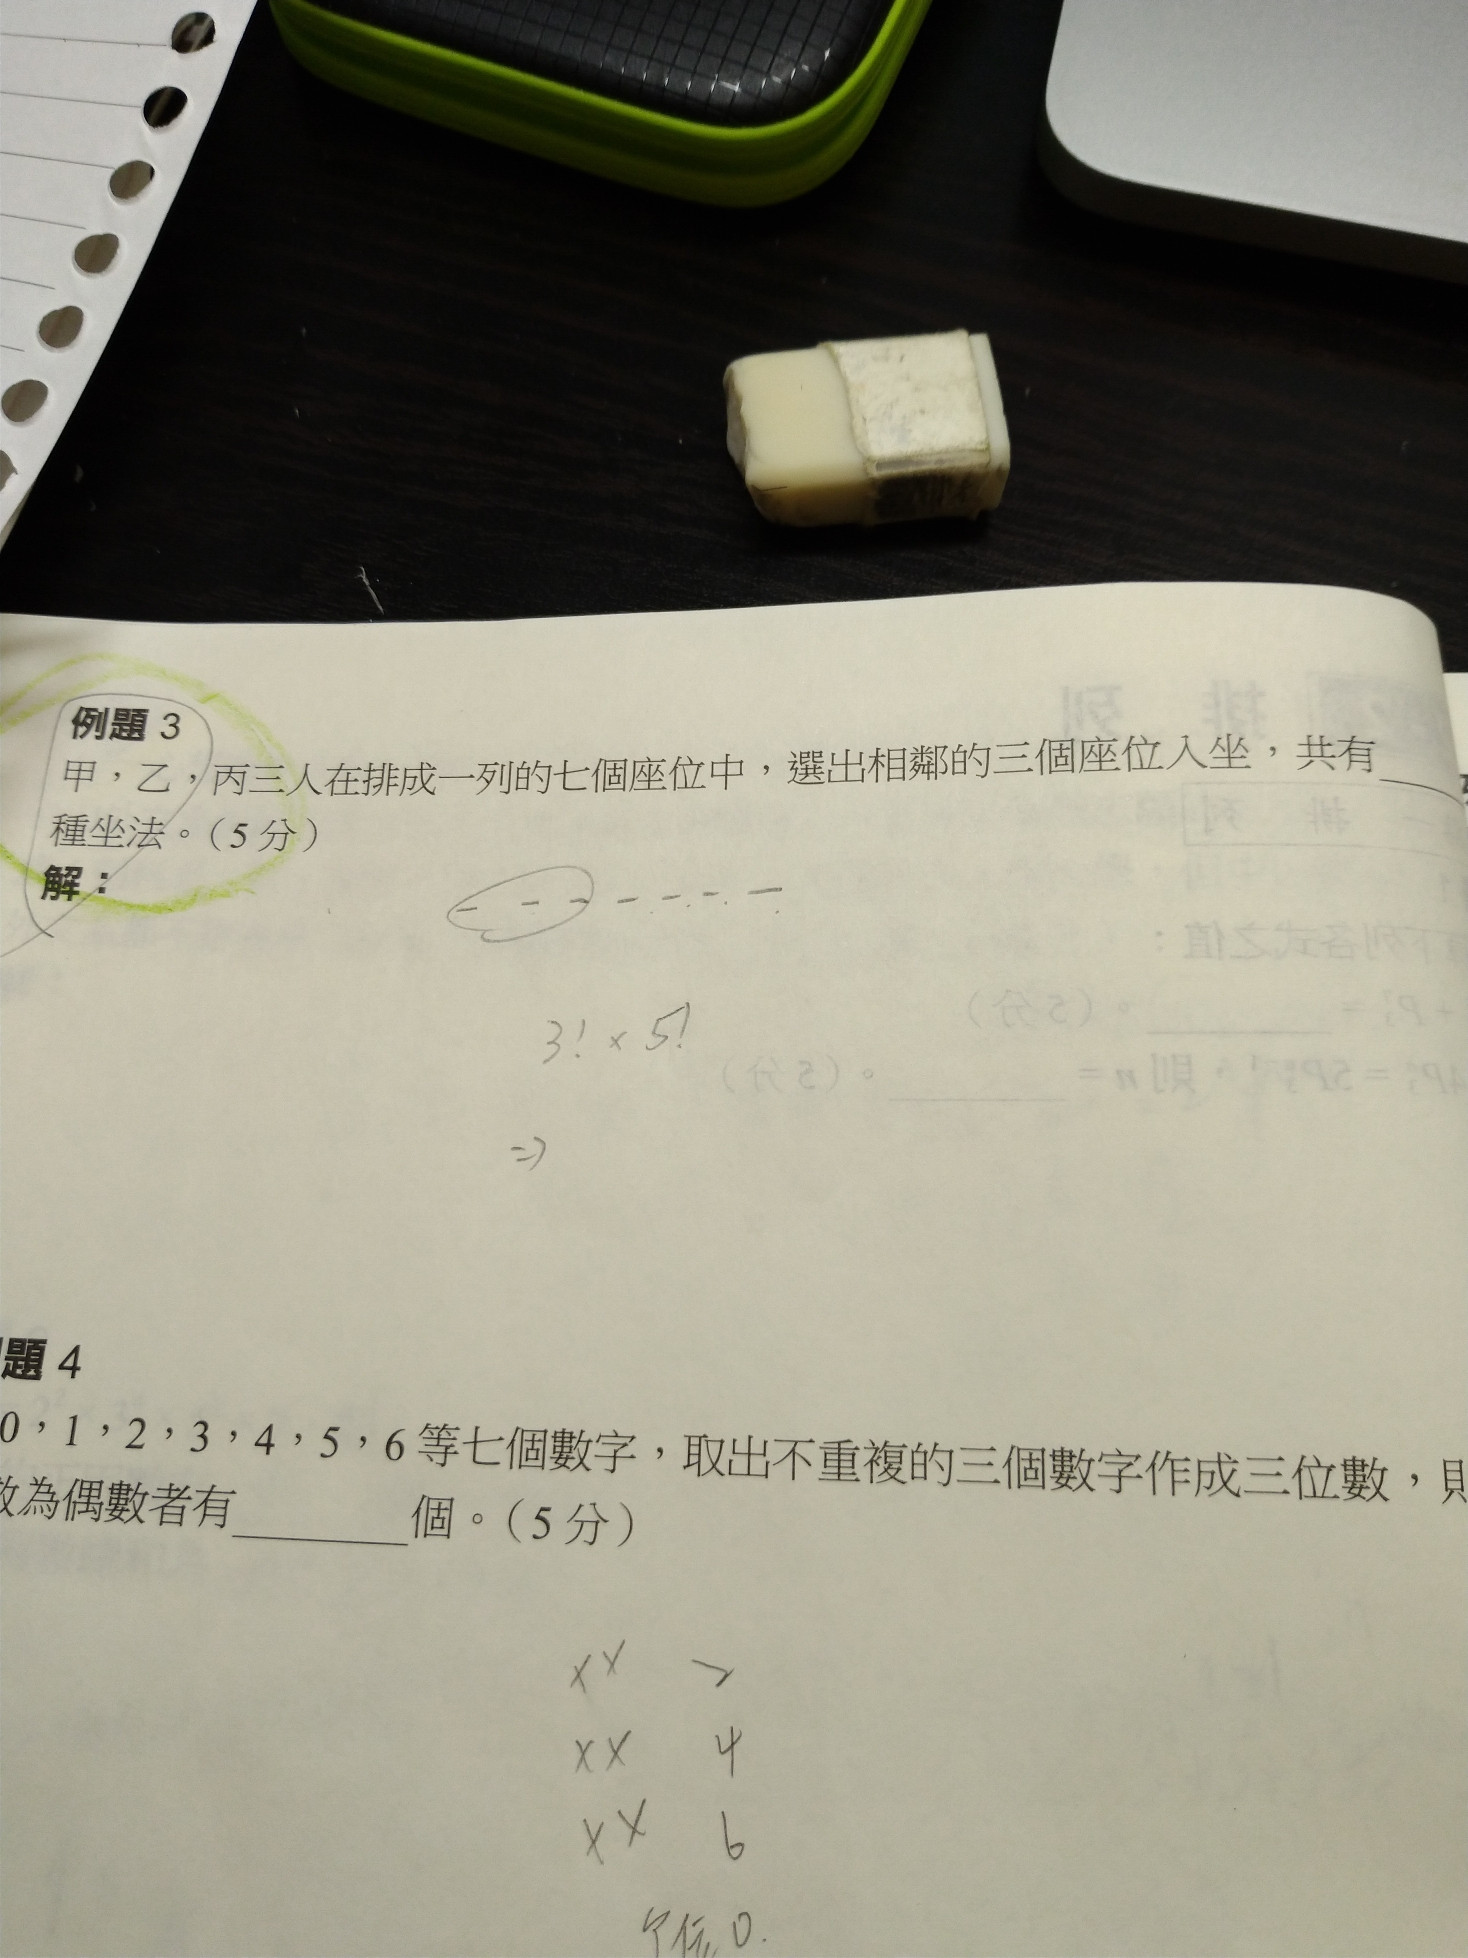 例題 3
甲，乙，丙三人在排成一列的七個座位中，選出相鄰的三個座位入坐，共有
種坐法。（5 分）
解：
3! × 5!
⇒
題 4
0，1，2，3，4，5，6 等七個數字，取出不重複的三個數字作成三位數，則
數為偶數者有________個。（5 分）
x x 2
x x 4
x x 6
0.